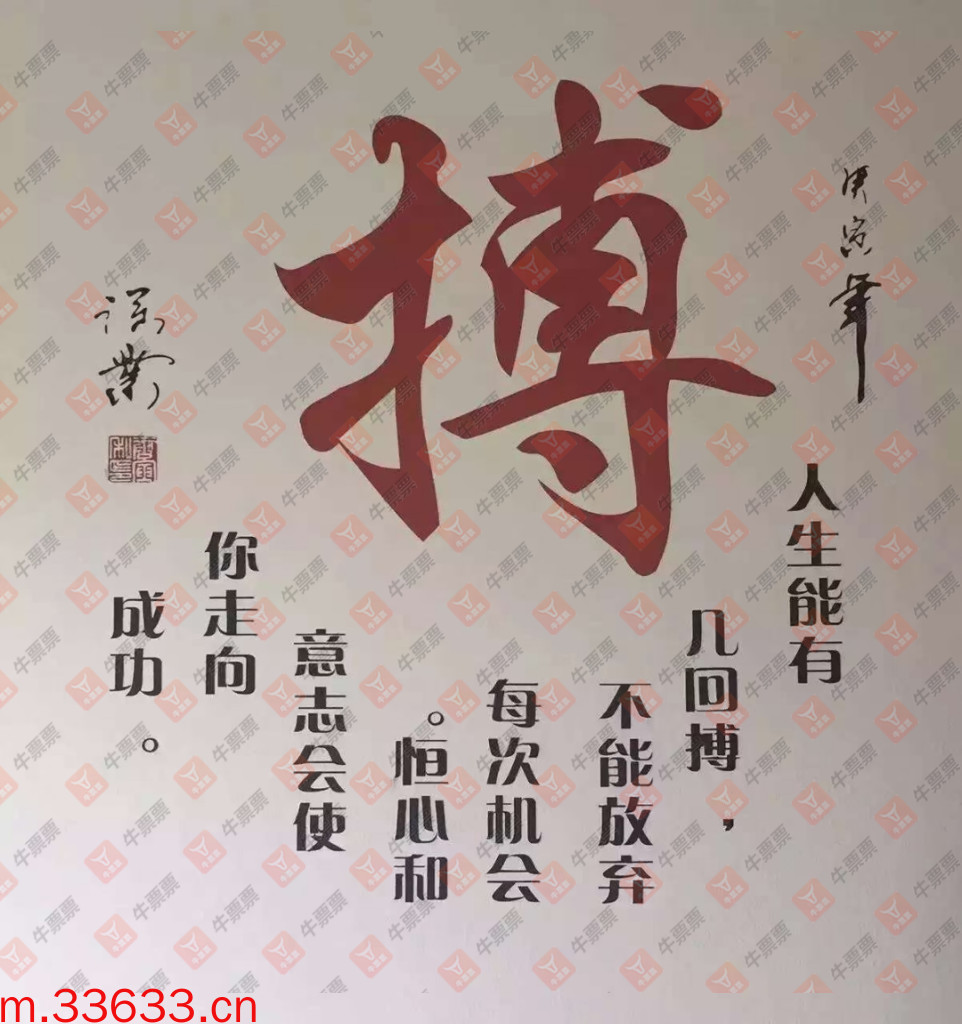 搏
庚寅年
人生能有
几回搏，
不能放弃
每次机会
。恒心和
意志会使
你走向
成功。
牛票票
m.33633.cn